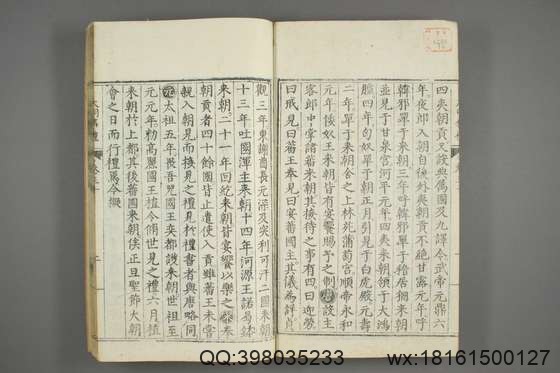 四夷朝貢又設典屬國及九譯令武帝元鼎六
年夜郎入朝自後外夷朝貢不絶甘露元年呼
韓邪單于來朝三年呼韓邪單于稽居狦來朝
並見于甘泉宮河平元年四夷來朝領于大鴻
臚四年匈奴單于朝正月引見于白虎殿元壽
二年單于來朝舍之上林苑蒲萄宮順帝永和
元年倭奴王來朝皆有宴饗賜予之制唐設主
客郎中掌諸蕃來朝其接待之事有四曰迎勞
曰戒見曰蕃王奉見曰宴蕃國主其儀為詳貞
觀三年東謝酋長元深及突利可汗二國來朝
十三年吐國渾主來朝十四年河源王諾曷鉢
來朝二十一年回紇來朝皆有宴饗以樂之宋奉
朝貢者四十餘國皆止遣使入貢雖蕃王未嘗
親入朝見而接見之禮見於禮書者與唐略同
元太祖五年畏吾兒國王奕都護來朝世祖至
元元年勑高麗國王植令脩世見之禮六月植
來朝於上都其後蕃國來朝俟正旦聖節大朝
會之日而行禮焉今擬
QQ:398035233
wx:18161500127